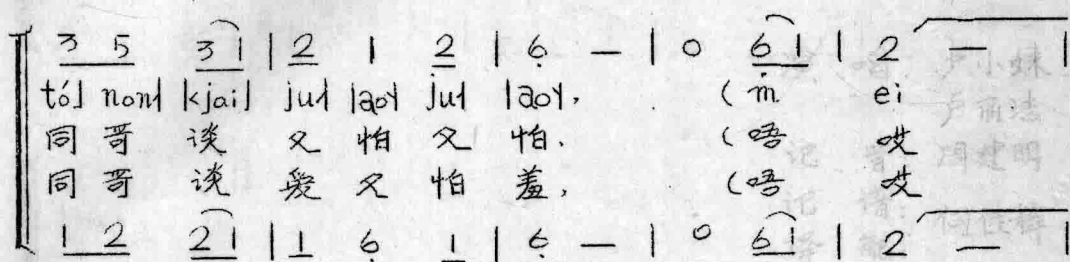 3 5 3 1 | 2 1 2 | 6 — | 0 6 1 | 2 — |
tó˩ non˧ kjai˩ ju˧ lao˥ ju˧ lao˥, (m ei
同 哥 谈 又 怕 又 怕. (唔 哎
同 哥 谈 爱 又 怕 羞, (唔 哎
1 2 2 1 | 1 6 1 | 6 — | 0 6 1 | 2 — |